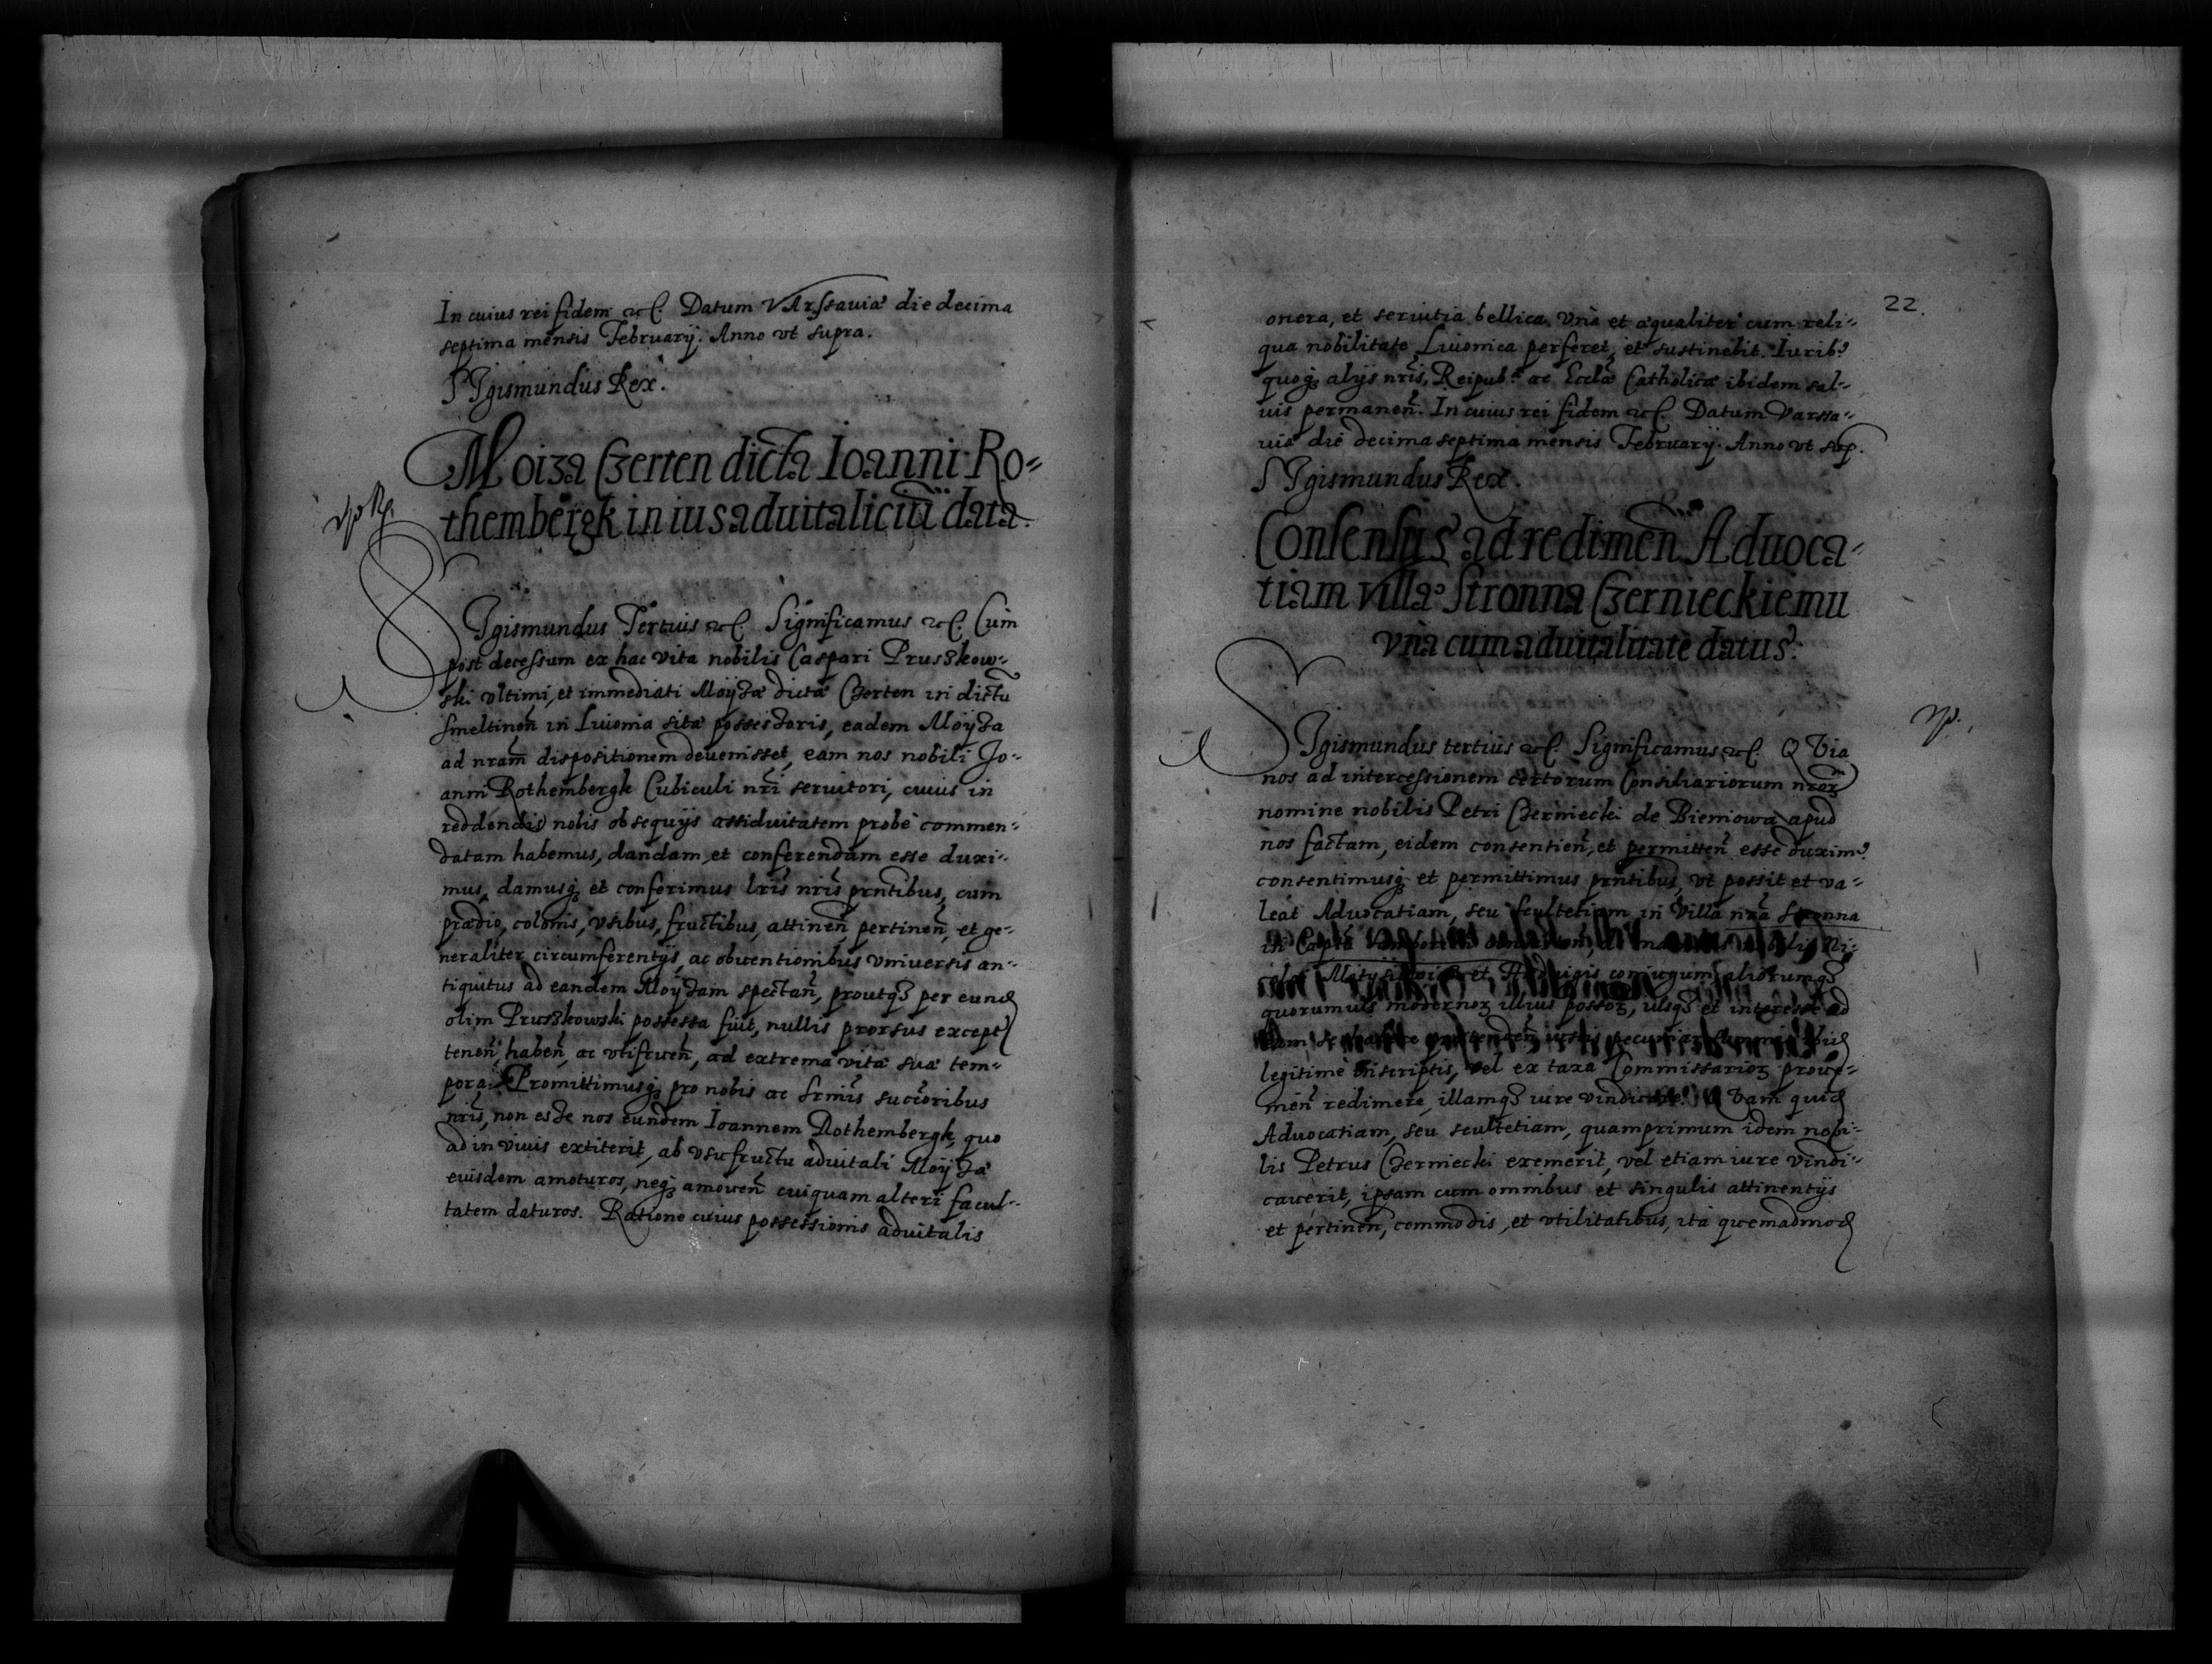 In cuius rei fidem etc. Datum Varssaviæ die decima
septima mensis Februarij. Anno vt supra.
SIgismundus Rex.
Moiza Czerten dicta Ioanni Ro=
thembergk in ius aduitaliciũ data.
SIgismundus Tertius etc. Significamus etc. Cum
post decessum ex hac vita nobilis Caspari Pruszkow=
ski vltimi, et immediati Moyzæ dictæ Czerten in dictũ
Smeltinen̄ in Liuonia sitæ possessoris, eadem Moyza
ad nram̃ dispositionem deuenisset, eam nos nobili Jo=
anni Rothembergk Cubiculi nri̇̃ seruitori, cuius in
reddendis nobis obsequijs assiduitatem probè commen=
datam habemus, dandam et conferendam esse duxi=
mus, damusq; et conferimus lris̃ nris̃ prñtibus, cum
prædio, colonis, vsibus, fructibus, attinen̄ pertinen̄, et ge=
neraliter circumferentijs, ac obuentionibus vniuersis an=
tiquitus ad eandem Moyzam spectan̄, proutq; per eund
olim Pruszkowski possessa fuit, nullis prorsus except
tenen̄, haben̄, ac vtifruen̄, ad extrema vitæ suæ tem=
pora. Promittimusq; pro nobis ac Srmis̃ succ̃oribus
nris̃, non esse nos eundem Ioannem Rothembergk, quo
ad in viuis extiterit, ab vsufructu aduitali Moyzæ
eiusdem amoturos, neq; amouen̄ cuiquam alteri facul=
tatem daturos. Ratione cuius possessionis aduitalis
22.
onera, et seruitia bellica vnà et æqualiter cum reli=
qua nobilitate Liuonica perferet, et sustinebit. Iurib9
quoq; alijs nris̃, Reipub. ac Ecclæ̃ Catholicæ ibidem sal=
uis permanen̄. In cuius rei fidem etc. Datum Varssa=
uiæ die decima septima mensis Februarij. Anno vt sup.
SIgismundus Rex.
Consensus ad redimen̄ Aduoca=
tiam villæ Stronna Czernieckiemu
vnà cum aduitalitate datus.
SIgismundus tertius etc. Significamus etc. QVia
nos ad intercessionem certorum Consiliariorum nroꝝ̃
nomine nobilis Petri Czerniecki de Bieniowa apud
nos factam, eidem consentien̄, et permitten̄ esse duxim9
consentimusq; et permittimus prñtibus, vt possit et va=
leat Aduocatiam, seu scultetiam in Villa nrã Stronna
in Captũ nobilis Ni=
colai et Heduigis coniugum aliorumq;
quorumuis modernoꝝ illius possoꝝ, iusq; et interesse ad
eam se habere
legitimè inscriptis, vel ex taxa Commissarioꝝ proue=
nien̄ redimere, illamq; iure vindicare. QVam quid
Aduocatiam, seu scultetiam, quamprimum idem nobi=
lis Petrus Czerniecki exemerit, vel etiam iure vindi=
cauerit, ipsam cum omnibus et singulis attinentijs
et pertinen̄, commodis, et vtilitatibus, ita quemadmod